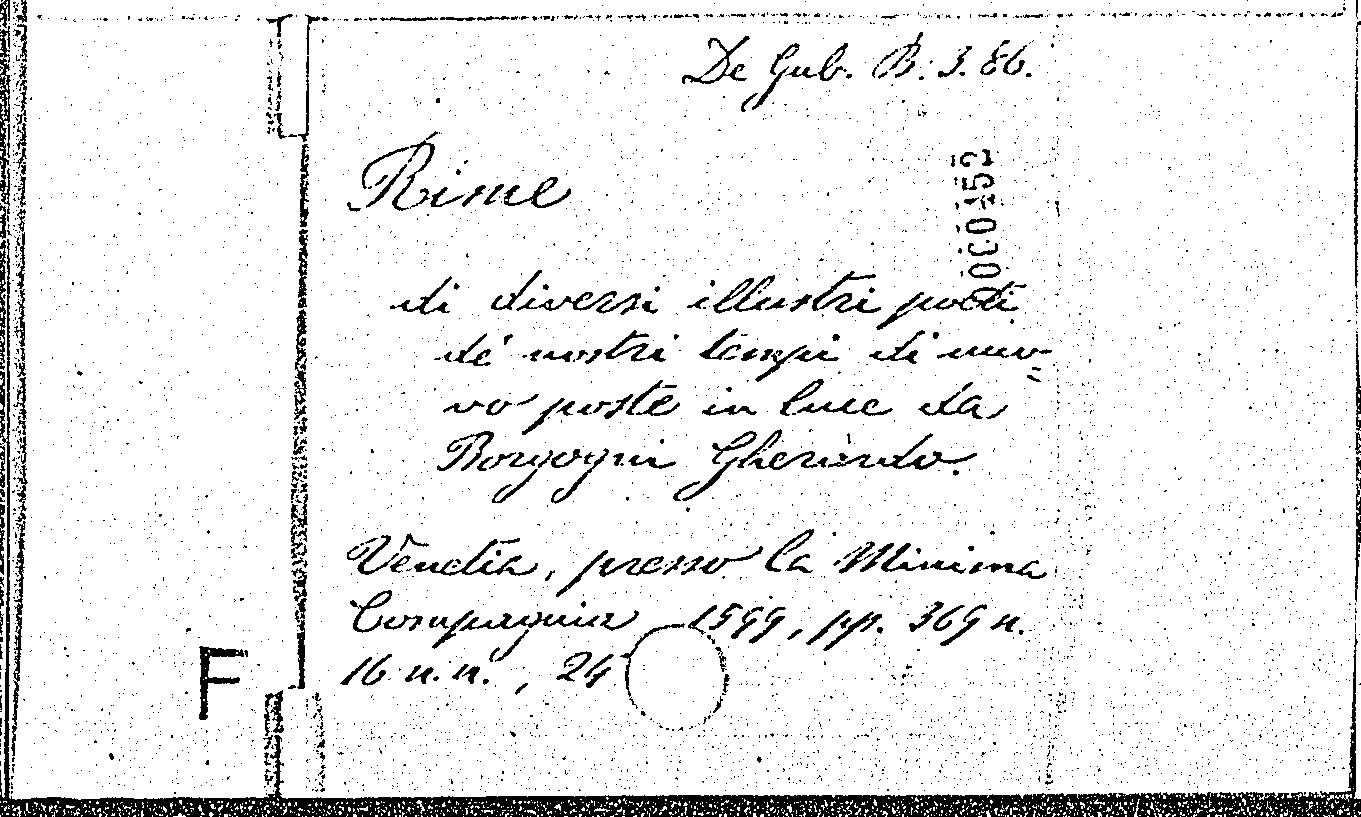 De Gub. B. 3. 86.
000452
Rime
di diversi illustri poeti
de' nostri tempi di nuo=
vo poste in luce da
Borgogni Gherardo.
Venetia, presso la Minima
Compagnia 1599, pp. 369 n.
16 n.n., 24°
F